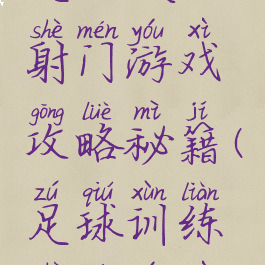 shè mén yóu xì
射门游戏
gōng lüè mì jí
攻略秘籍(
zú qiú xùn liàn
足球训练